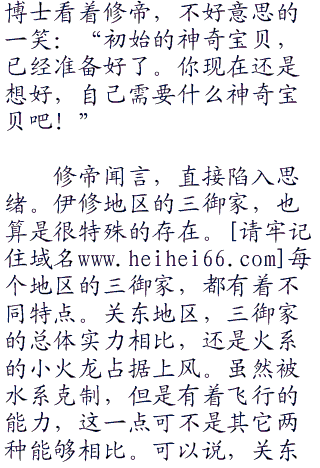 博士看着修帝，不好意思的
一笑：“初始的神奇宝贝，
已经准备好了。你现在还是
想好，自己需要什么神奇宝
贝吧！”
修帝闻言，直接陷入思
绪。伊修地区的三御家，也
算是很特殊的存在。[请牢记
住域名www.heihei66.com]每
个地区的三御家，都有着不
同特点。关东地区，三御家
的总体实力相比，还是火系
的小火龙占据上风。虽然被
水系克制，但是有着飞行的
能力，这一点可不是其它两
种能够相比。可以说，关东